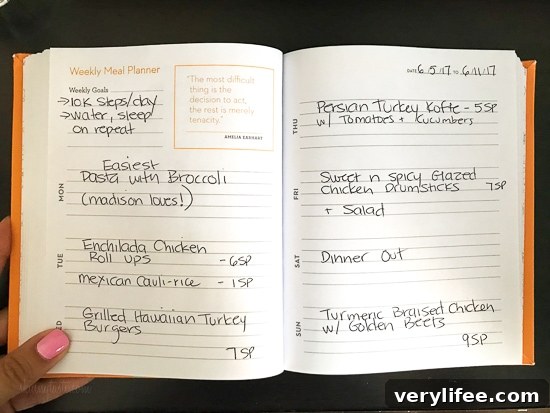 Weekly Meal Planner
Weekly Goals
→10K Steps/day
→water, sleep
on repeat
"The most difficult
thing is the
decision to act,
the rest is merely
tenacity."
AMELIA EARHART
MON
Easiest
Pasta with Broccoli
(madison loves!)
TUE
Enchilada Chicken
Roll ups - 6SP
mexican cauli-rice - 1SP
ED
Grilled Hawaiian Turkey
Burgers
7SP
DATE 6.5.17 TO 6/11/17
THU
Persian Turkey Kofte - 5SP
w/ Tomatoes + Kucumbers
FRI
Sweet n spicy Glazed
Chicken Drumsticks 7SP
+ Salad
SAT
Dinner Out
SUN
Turmeric Braised Chicken
w/ Golden Beets
9SP
verylifee.com